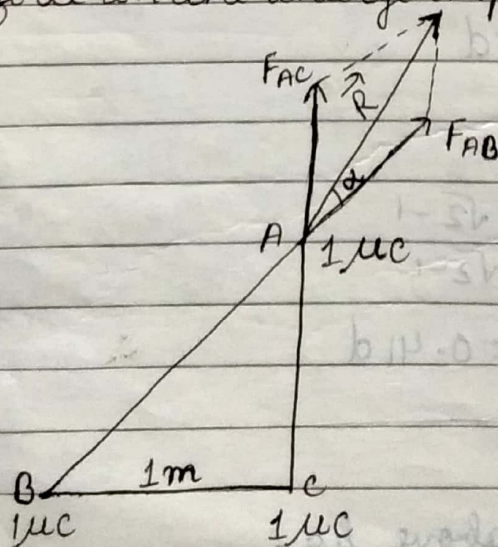 F_AC
R⃗
F_AB
α
A 1μC
1m
B C
1μC 1μC